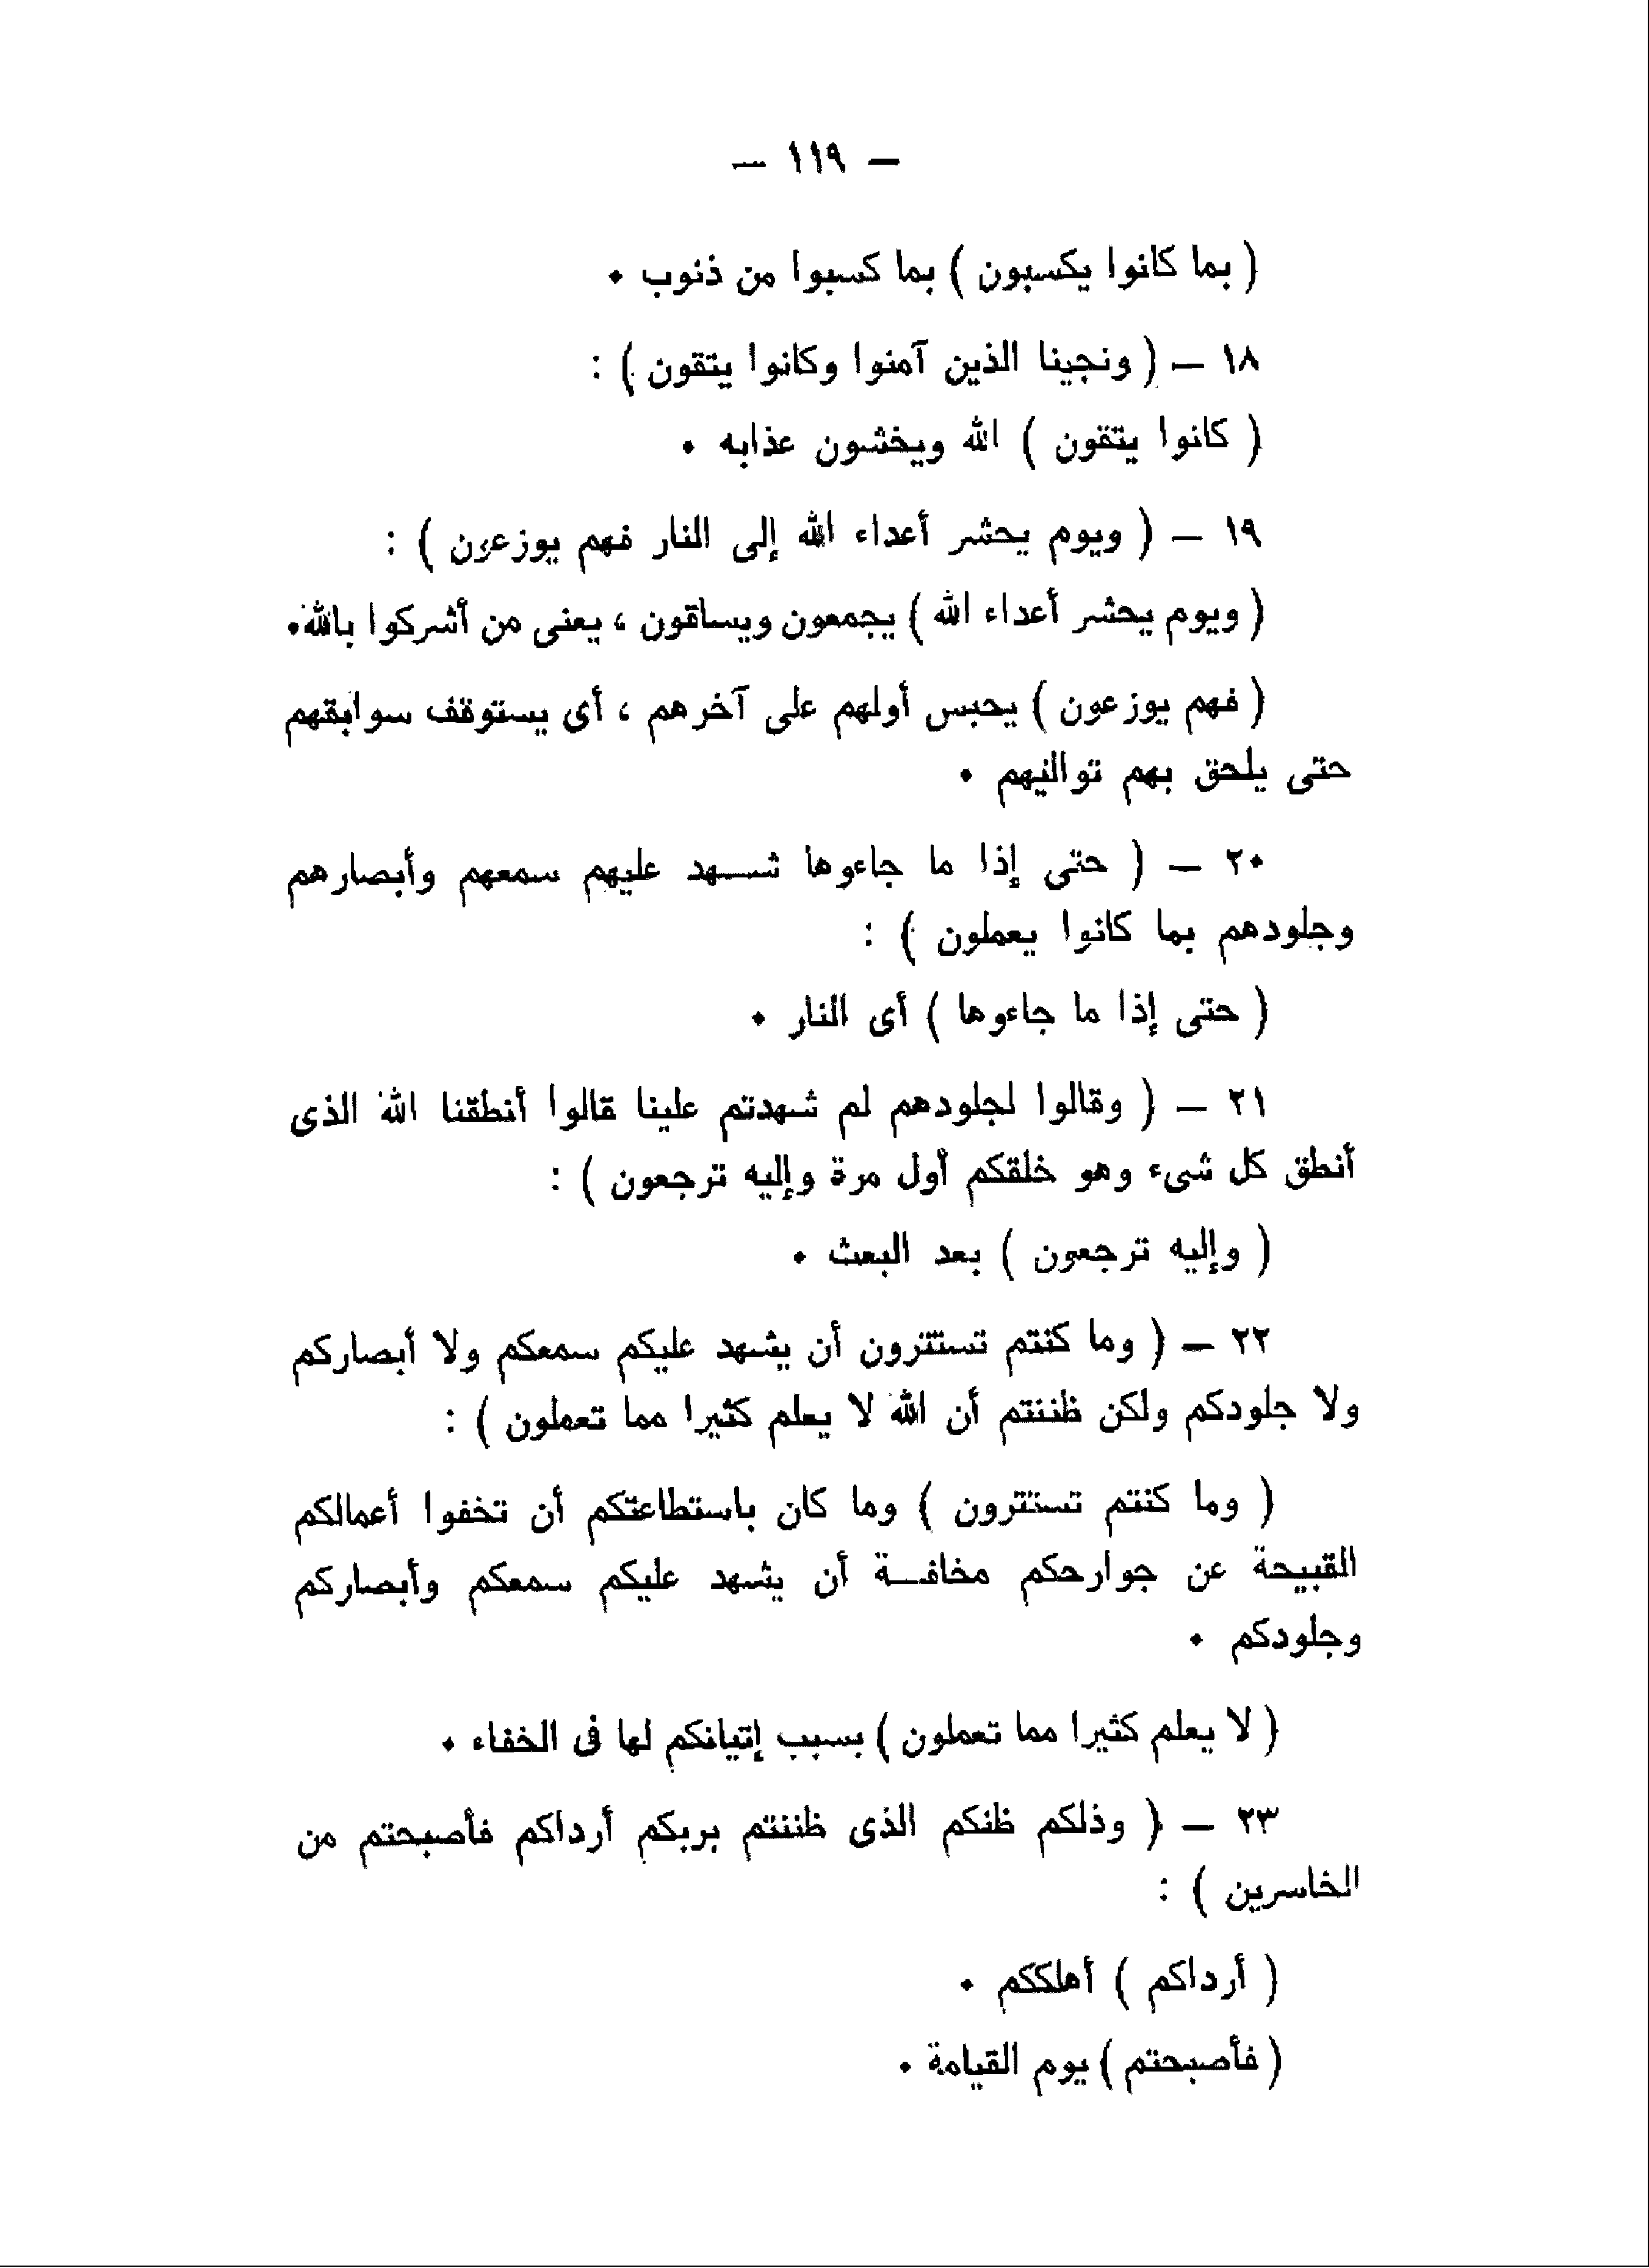 — ١١٩ —
( بما كانوا يكسبون ) بما كسبوا من ذنوب ٠
١٨ — ( ونجينا الذين آمنوا وكانوا يتقون ) :
( كانوا يتقون ) الله ويخشون عذابه ٠
١٩ — ( ويوم يحشر أعداء الله إلى النار فهم يوزعون ) :
( ويوم يحشر أعداء الله ) يجمعون ويساقون ، يعنى من أشركوا بالله ٠
( فهم يوزعون ) يحبس أولهم على آخرهم ، أى يستوقف سوابقهم
حتى يلحق بهم تواليهم ٠
٢٠ — ( حتى إذا ما جاءوها شهد عليهم سمعهم وأبصارهم
وجلودهم بما كانوا يعملون ) :
( حتى إذا ما جاءوها ) أى النار ٠
٢١ — ( وقالوا لجلودهم لم شهدتم علينا قالوا أنطقنا الله الذى
أنطق كل شىء وهو خلقكم أول مرة وإليه ترجعون ) :
( وإليه ترجعون ) بعد البعث ٠
٢٢ — ( وما كنتم تستترون أن يشهد عليكم سمعكم ولا أبصاركم
ولا جلودكم ولكن ظننتم أن الله لا يعلم كثيرا مما تعملون ) :
( وما كنتم تستترون ) وما كان باستطاعتكم أن تخفوا أعمالكم
القبيحة عن جوارحكم مخافة أن يشهد عليكم سمعكم وأبصاركم
وجلودكم ٠
( لا يعلم كثيرا مما تعملون ) بسبب إتيانكم لها فى الخفاء ٠
٢٣ — ( وذلكم ظنكم الذى ظننتم بربكم أرداكم فأصبحتم من
الخاسرين ) :
( أرداكم ) أهلككم ٠
( فأصبحتم ) يوم القيامة ٠